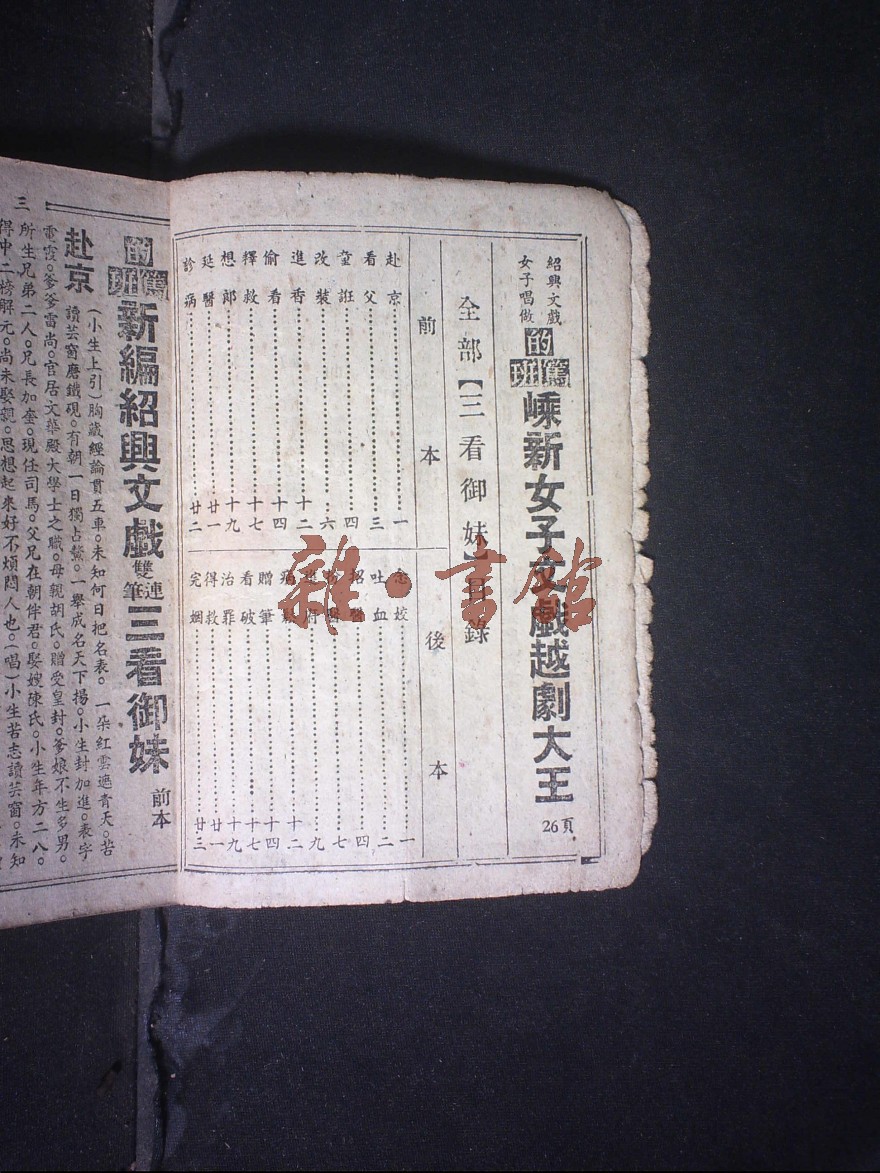 紹興文戲
女子唱做
的篤班
嵊新女子文戲越劇大王
26頁
全部【三看御妹】目錄
前本
後本
赴京……一
看父……三
童誑……四
改裝……六
進香……十二
偷看……十四
釋救……十七
想郎……十九
延醫……廿一
診病……廿二
吐血……二
贈筆……十四
看破……十七
治罪……十九
得救……廿一
完姻……廿三
雜·書館
的篤班
新編紹興文戲
雙連筆
三看御妹
前本
赴京
(小生上引)胸藏經論貫五車。未知何日把名表。一朵紅雲遮青天。苦
讀芸窗磨鐵硯。有朝一日獨占鰲。一舉成名天下揚。小生封加進。表字
電霞。爹爹雷尚。官居文華殿大學士之職。母親胡氏。贈受皇封。爹娘不生多男。
所生兄弟二人。兄長加奎。現任司馬。父兄在朝伴君。娶嫂陳氏。小生年方二八。
得中二榜解元。尚未娶親。思想起來好不煩悶人也。(唱)小生苦志讀芸窗。未知
三